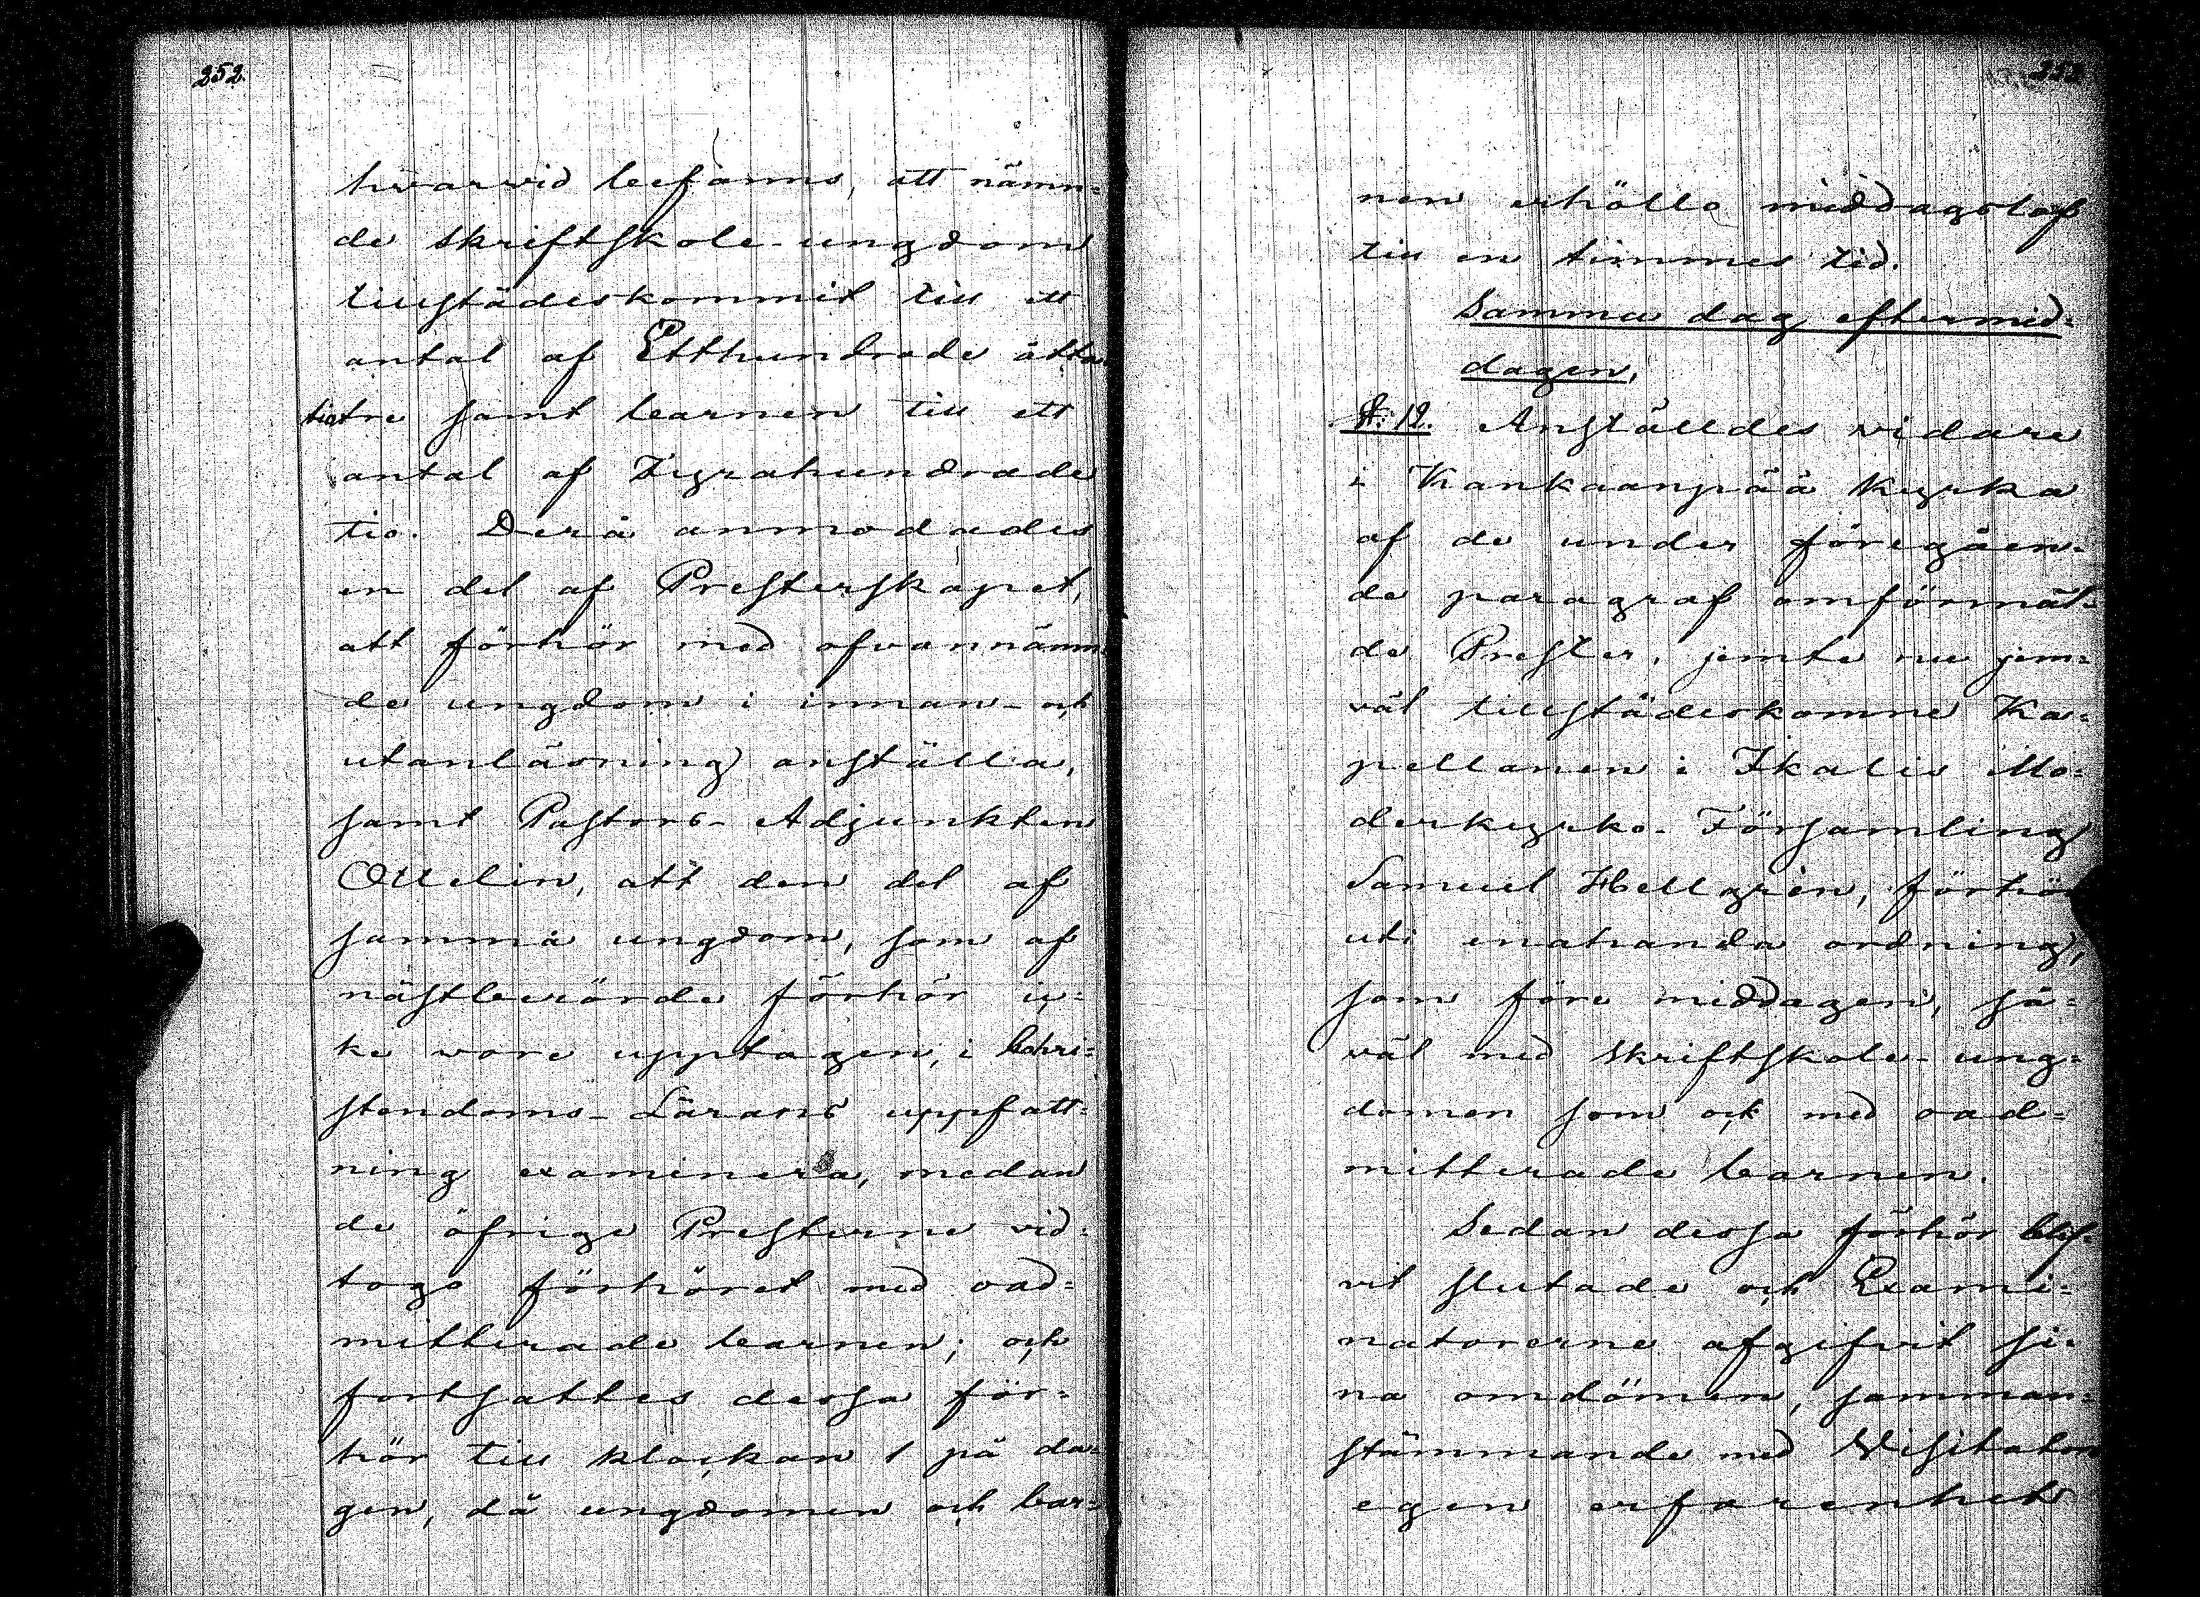 252.
hvarvid befanns, att nämn=
de skriftskole-ungdom
tillstädeskommit till ett
antal af Etthundrade åtta
tiotre samt barnen till ett
antal af Fyrahundrade
tio. Derå anmodades
en del af Presterskapet,
att förhör med ofvannämn=
de ungdom i innan- och
utanläsning anställa,
samt Pastors-Adjunkten
Ollelin, att den del af
samma ungdom, som af
nästberörde förhör ic=
ke vore upptagen, i Chri=
stendoms-Lärans uppfatt=
ning examinera, medan
de öfrige Presterne vid=
togo förhöret med oad=
mitterade barnen; och
fortsattes dessa för=
hör till klockan 1 på da=
gen, då ungdomen och bar=
253.
nen erhöllo middagslof
till en timmes tid.
Samma dag eftermid=
dagen.
§: 12. Anställdes vidare
i Kankaanpää kyrka
af de under föregåen=
de paragraf omförmäl=
de Prester, jemte nu jem=
väl tillstädeskomne Ka=
pellanen i Ikalis Mo=
derkyrko-Församling
Samuel Hellgrèn, förhör
uti enahanda ordning,
som före middagen, så=
väl med skriftskole-ung=
domen som ock med oad=
mitterade barnen.
Sedan dessa förhör blif=
vit slutade och Exami=
natorerne afgifvit si=
na omdömen, samman=
stämmande med Visitators
egen erfarenhet